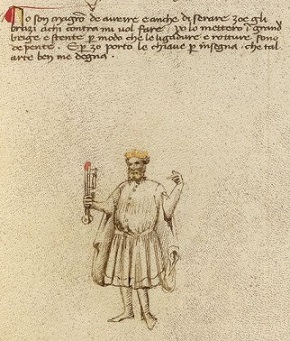 Io son magrō de avrire e anche di serare zoe gli
brazi a chi contra mi vol fare. Yo lo mettero ī grand
breige e stente ꝑ modo che le ligadure e rotture sono
depente. E ꝑ zo porto le chiave ꝑ insegna che tal
arte ben me degna.